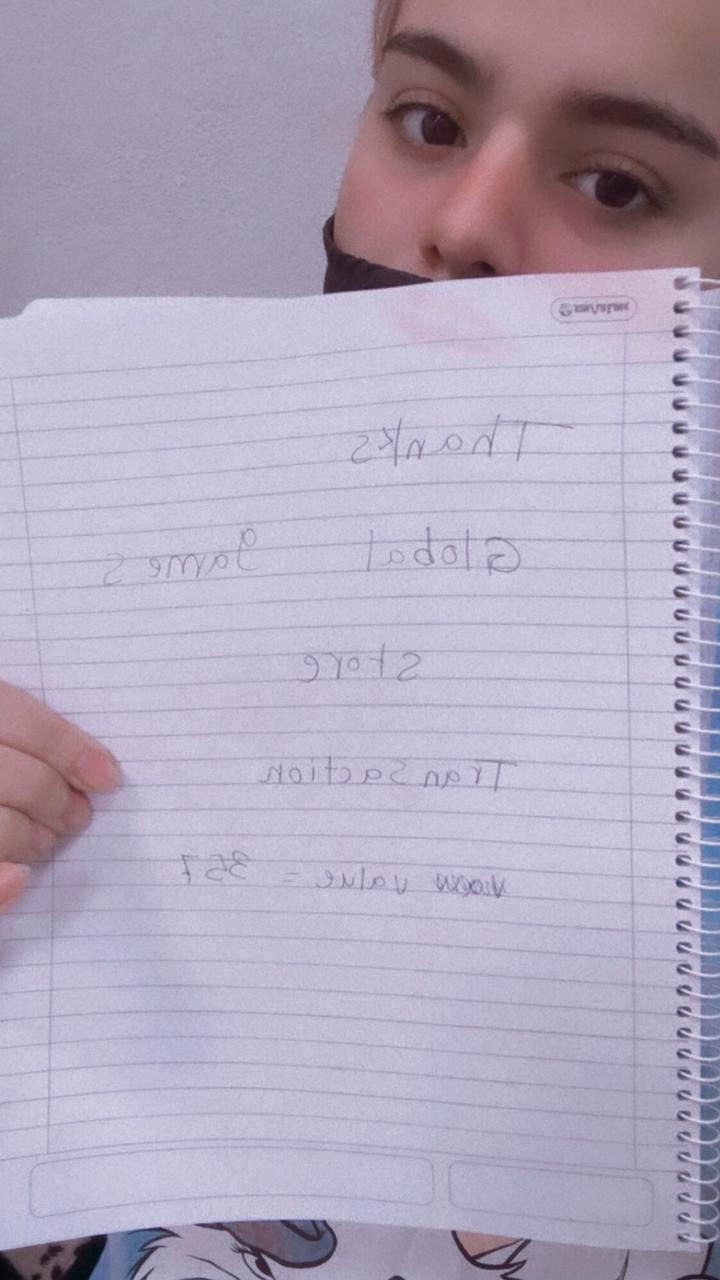 Thanks
Global games
store
TranSaction
value = 357